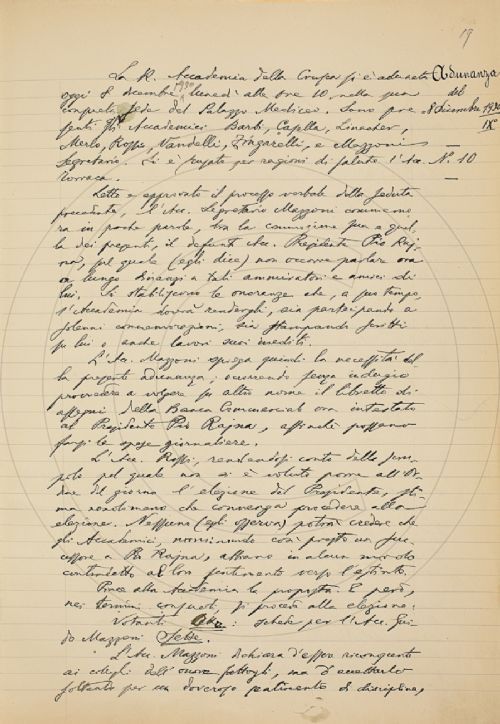 19
La R. Accademia della Crusca si è adunata
oggi 8 dicembre 1930 lunedì alle ore 10 nella sua
consueta sede del Palazzo Mediceo. Sono pre
senti gli Accademici Barbi, Linacher,
Merlo, Rossi, Vandelli, Zingarelli, e Mazzoni
segretario. Si è scusato per ragioni di salute l'Acc.
Torraca.
Adunanza
del
8 Dicembre 1930
IX°
N. 10
Letto e approvato il processo verbale della seduta
precedente, l'Acc. Segretario Mazzoni commemo
ra in poche parole, tra la commozione sua e quel
la dei presenti, il defunto Acc. Presidente Pio Raj
na, pel quale (egli dice) non occorre parlare ora
a lungo dinanzi a tali ammiratori e amici di
lui. Si stabiliscono le onoranze che, a suo tempo,
l'Accademia dovrà rendergli, sia partecipando a
solenni commemorazioni, sia stampando scritti
su lui o anche lavori suoi inediti.
L'Acc. Mazzoni spiega quindi la necessità del
la presente adunanza, occorrendo senza indugio
provvedere a volgere su altro nome il libretto di
assegni della Banca Commerciale ora intestato
al Presidente Pio Rajna, affinché possano
farsi le spese giornaliere.
L'Acc. Rossi, rendendosi conto dello scru
polo pel quale non si è voluto porre all'Or
dine del giorno l'elezione del Presidente, sti
ma nondimeno che convenga procedere alla
elezione. Nessuno (egli osserva) potrà credere che
gli Accademici, nominando così presto un suc
cessore a Pio Rajna, abbiano in alcun modo
contraddetto al lor sentimento verso l'estinto.
Piace alla Accademia la proposta. E però,
nei termini consueti, si procede alla elezione.
Votanti : schede per l'Acc. Gui
do Mazzoni Sette.
L'Acc. Mazzoni dichiara d'essere riconoscente
ai colleghi dell'onore fattogli, ma d'accettarlo
soltanto per un doveroso sentimento di disciplina,